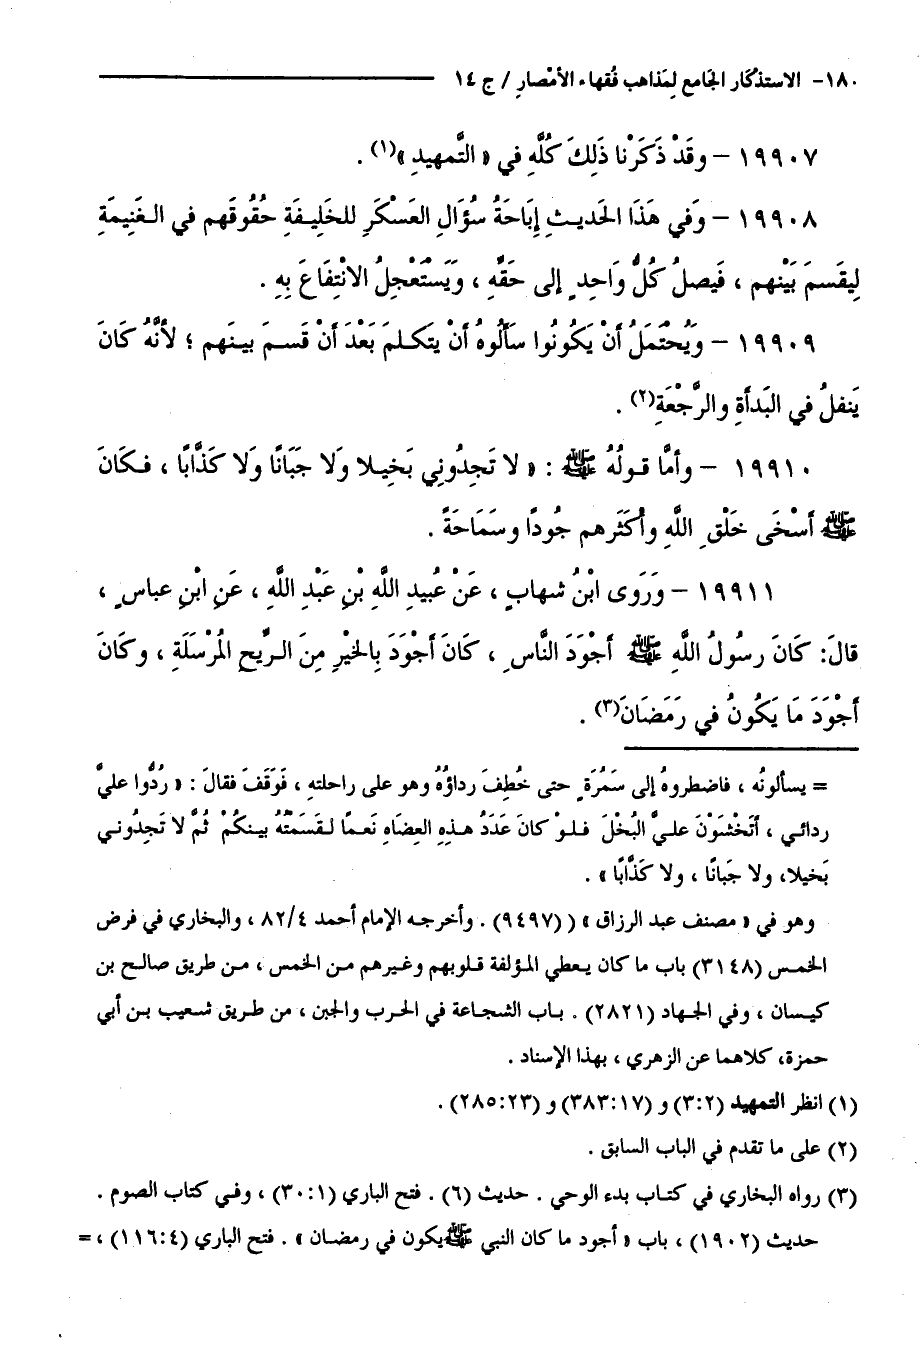 ١٨٠- الاستذكار الجامع لِمَذاهب فُقهاء الأمْصارِ / ج ١٤
١٩٩٠٧ – وقَدْ ذَكَرْنا ذَلِكَ كُلَّهِ في « التَّمهيدِ »(١) .
١٩٩٠٨ – وَفي هَذَا الحَديثِ إِبَاحَةُ سُؤَالِ العَسْكَرِ للخَلِيفَةِ حُقُوقَهم في الغَنِيمَةِ
لِيقَسمَ بَيْنهم ، فَيصلُ كُلُّ وَاحِدٍ إلى حَقِّه ، وَيَسْتَعْجِلُ الانْتِفَاعَ بِهِ .
١٩٩٠٩ – وَيُحْتَمَلُ أنْ يَكُونُوا سَأَلُوهُ أنْ يتَكلمَ بَعْدَ أن قَسمَ بينَهم ؛ لأنَّهُ كَانَ
يَنفلُ في البَدأَةِ والرَّجْعَةِ(٢) .
١٩٩١٠ – وأمَّا قولُهُ ﷺ : « لا تَجِدُوني بَخيلا ولا جَبَانًا ولا كَذَّابًا ، فكَانَ
ﷺ أسْخَى خَلْقِ اللَّهِ وأكثَرهم جُودًا وسَمَاحَةً .
١٩٩١١ – ورَوَى ابْنُ شهابٍ ، عَنْ عُبيدِ اللَّهِ بْنِ عَبْدِ اللَّهِ ، عَنِ ابْنِ عباسٍ ،
قالَ: كَانَ رسولُ اللَّهِ ﷺ أجْوَدَ النَّاسِ ، كَانَ أجْوَدَ بِالخَيْرِ مِنَ الرِّيحِ المُرْسَلَةِ ، وكَانَ
أجْوَدَ مَا يَكُونُ في رَمَضَانَ(٣) .
= يسألونُه ، فاضطروهُ إلى سَمُرَةٍ حتى خُطِفَ رداؤُهُ وهو على راحلته ، فَوَقَفَ فقالَ : « رُدُّوا عليَّ
ردائي ، أتَخْشَوْنَ عليَّ البُخْلَ فلو كانَ عَدَدُ هذهِ العضَاهِ نَعمًا لقَسَمْتُهُ بينكُمْ ثُمَّ لا تَجدُوني
بَخيلا، ولا جَبانًا ، ولا كَذَّابًا » .
وهو في « مصنف عبد الرزاق » ( (٩٤٩٧) . وأخرجه الإمام أحمد ٨٢/٤ ، والبخاري في فرض
الخمس (٣١٤٨) باب ما كان يعطي المؤلفة قلوبهم وغيرهم من الخمس ، من طريق صالح بن
كيسان ، وفي الجهاد (٢٨٢١) . باب الشجاعة في الحرب والجبن ، من طريق شعيب بن أبي
حمزة، كلاهما عن الزهري ، بهذا الإسناد .
(١) انظر التمهيد (٣:٢) و (٣٨٣:١٧) و (٢٨٥:٢٣) .
(٢) على ما تقدم في الباب السابق .
(٣) رواه البخاري في كتاب بدء الوحي . حديث (٦) . فتح الباري (٣٠:١) ، وفي كتاب الصوم .
حديث (١٩٠٢) ، باب « أجود ما كان النبي ﷺ يكون في رمضان » . فتح الباري (١١٦:٤) ، =